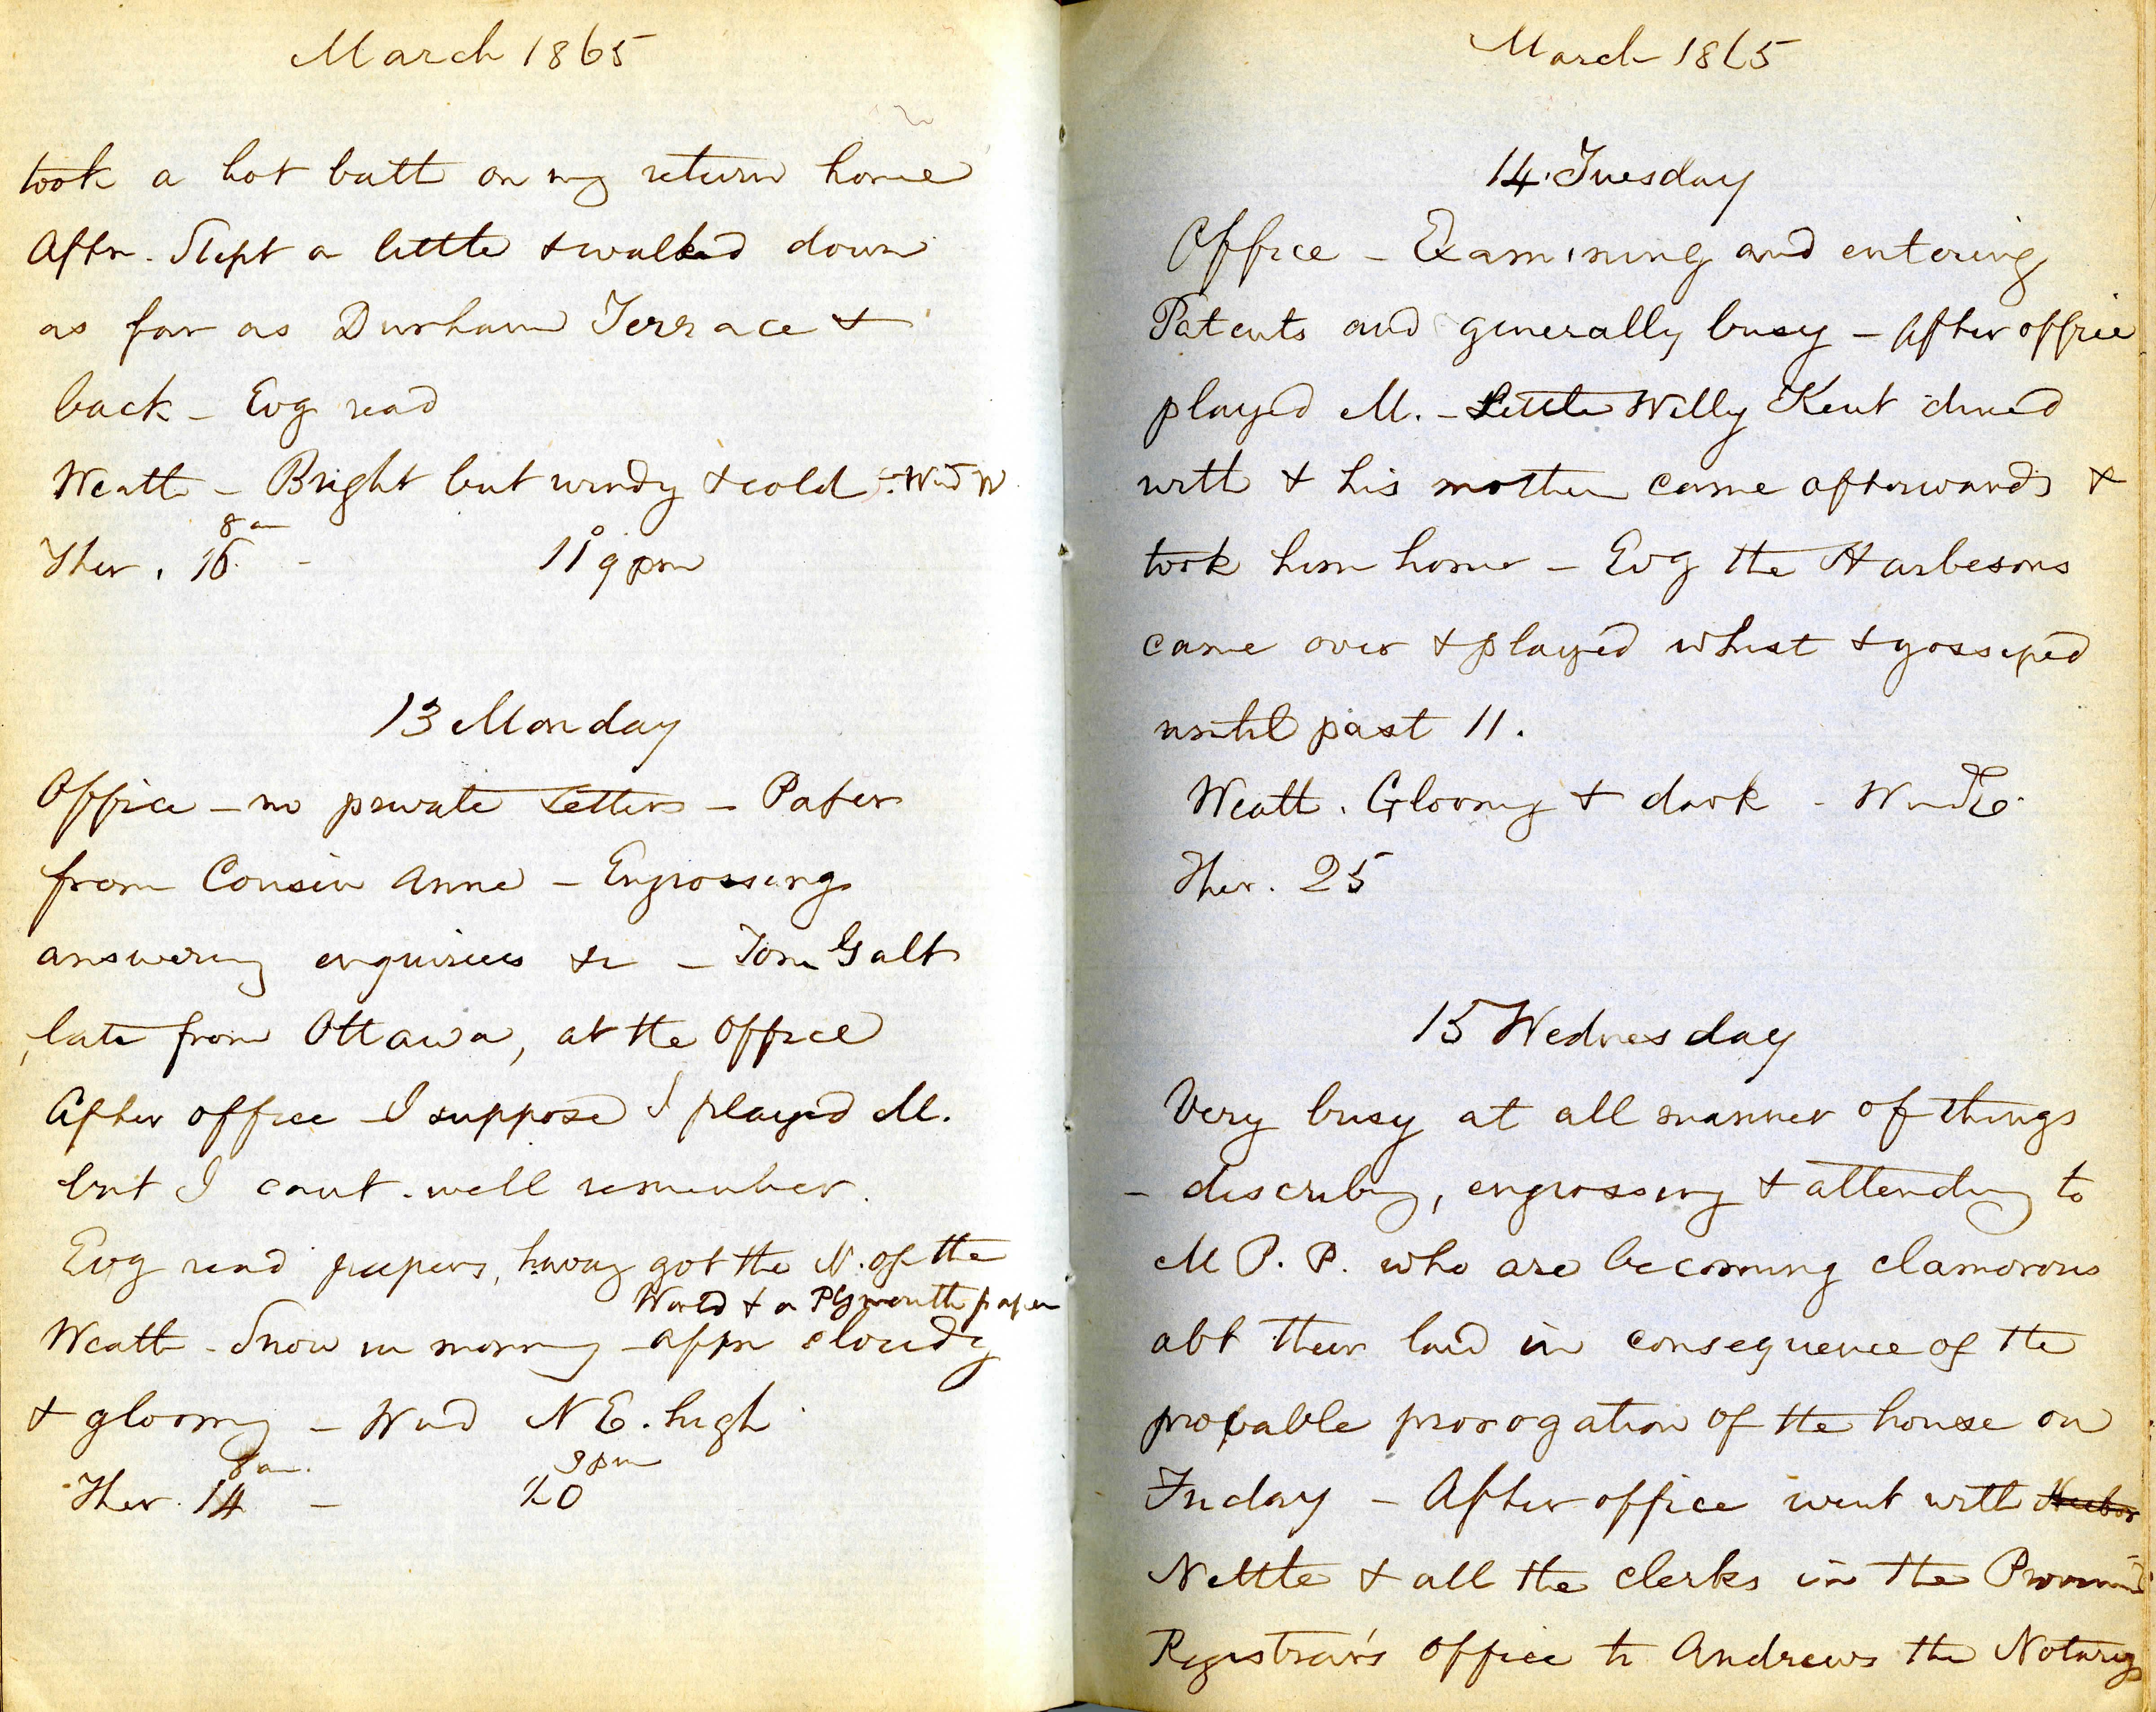 March 1865
took a hot bath on my return home
Aftn. Slept a little & walked down
as far as Durham Terrace &
back - Evg read
Weath - Bright but windy & cold - Wind W
8 am
Ther. 16 - 11° 9 pm
13 Monday
Office - no private letters - Paper
from Cousin Anne - Engrossing
answering enquiries &c - Tom Galt
late from Ottawa, at the Office
After office I suppose I played M.
but I cant well remember.
Evg read papers, having got the N. of the
World & a Plymouth paper
Weath - Snow in morning - aftn cloudy
& gloomy - Wind N E. high
8 am. 9 pm
Ther. 14 - 20
March 1865
14. Tuesday
Office - Examining and entering
Patents and generally busy - After office
played M. - Little Willy Kent dined
with & his mother came afterwards &
took him home - Evg the Harbesons
came over & played whist & gossiped
until past 11.
Weath. Gloomy & dark - Wind E.
Ther. 25
15 Wednesday
Very busy at all manner of things
- describing, engrossing & attending to
M P. P. who are becoming clamorous
abt their land in consequence of the
probable prorogation of the house on
Friday - After office went with
Nettle & all the clerks in the
Registrar's Office to Andrews the Notary